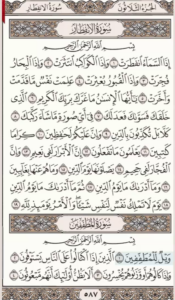 الجزء الثلاثون سورة الانفطار
سورة الانفطار
بِسْمِ ٱللَّهِ ٱلرَّحْمَٰنِ ٱلرَّحِيمِ
إِذَا ٱلسَّمَآءُ ٱنفَطَرَتْ ١ وَإِذَا ٱلْكَوَاكِبُ ٱنتَثَرَتْ ٢ وَإِذَا ٱلْبِحَارُ
فُجِّرَتْ ٣ وَإِذَا ٱلْقُبُورُ بُعْثِرَتْ ٤ عَلِمَتْ نَفْسٌ مَّا قَدَّمَتْ
وَأَخَّرَتْ ٥ يَٰٓأَيُّهَا ٱلْإِنسَٰنُ مَا غَرَّكَ بِرَبِّكَ ٱلْكَرِيمِ ٦ ٱلَّذِى
خَلَقَكَ فَسَوَّىٰكَ فَعَدَلَكَ ٧ فِىٓ أَىِّ صُورَةٍ مَّا شَآءَ رَكَّبَكَ ٨
كَلَّا بَلْ تُكَذِّبُونَ بِٱلدِّينِ ٩ وَإِنَّ عَلَيْكُمْ لَحَٰفِظِينَ ١٠ كِرَامًا
كَٰتِبِينَ ١١ يَعْلَمُونَ مَا تَفْعَلُونَ ١٢ إِنَّ ٱلْأَبْرَارَ لَفِى نَعِيمٍ ١٣ وَإِنَّ
ٱلْفُجَّارَ لَفِى جَحِيمٍ ١٤ يَصْلَوْنَهَا يَوْمَ ٱلدِّينِ ١٥ وَمَا هُمْ عَنْهَا بِغَآئِبِينَ
١٦ وَمَآ أَدْرَىٰكَ مَا يَوْمُ ٱلدِّينِ ١٧ ثُمَّ مَآ أَدْرَىٰكَ مَا يَوْمُ ٱلدِّينِ
١٨ يَوْمَ لَا تَمْلِكُ نَفْسٌ لِّنَفْسٍ شَيْـًٔا وَٱلْأَمْرُ يَوْمَئِذٍ لِّلَّهِ ١٩
سورة المطففين
بِسْمِ ٱللَّهِ ٱلرَّحْمَٰنِ ٱلرَّحِيمِ
وَيْلٌ لِّلْمُطَفِّفِينَ ١ ٱلَّذِينَ إِذَا ٱكْتَالُوا۟ عَلَى ٱلنَّاسِ يَسْتَوْفُونَ ٢
وَإِذَا كَالُوهُمْ أَو وَّزَنُوهُمْ يُخْسِرُونَ ٣ أَلَا يَظُنُّ أُو۟لَٰٓئِكَ أَنَّهُم مَّبْعُوثُونَ ٤
٥٨٧